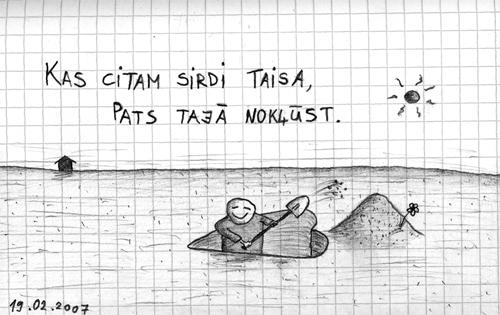 KAS CITAM SIRDI TAISA,
PATS TAJĀ NOKĻŪST.
19.02.2007